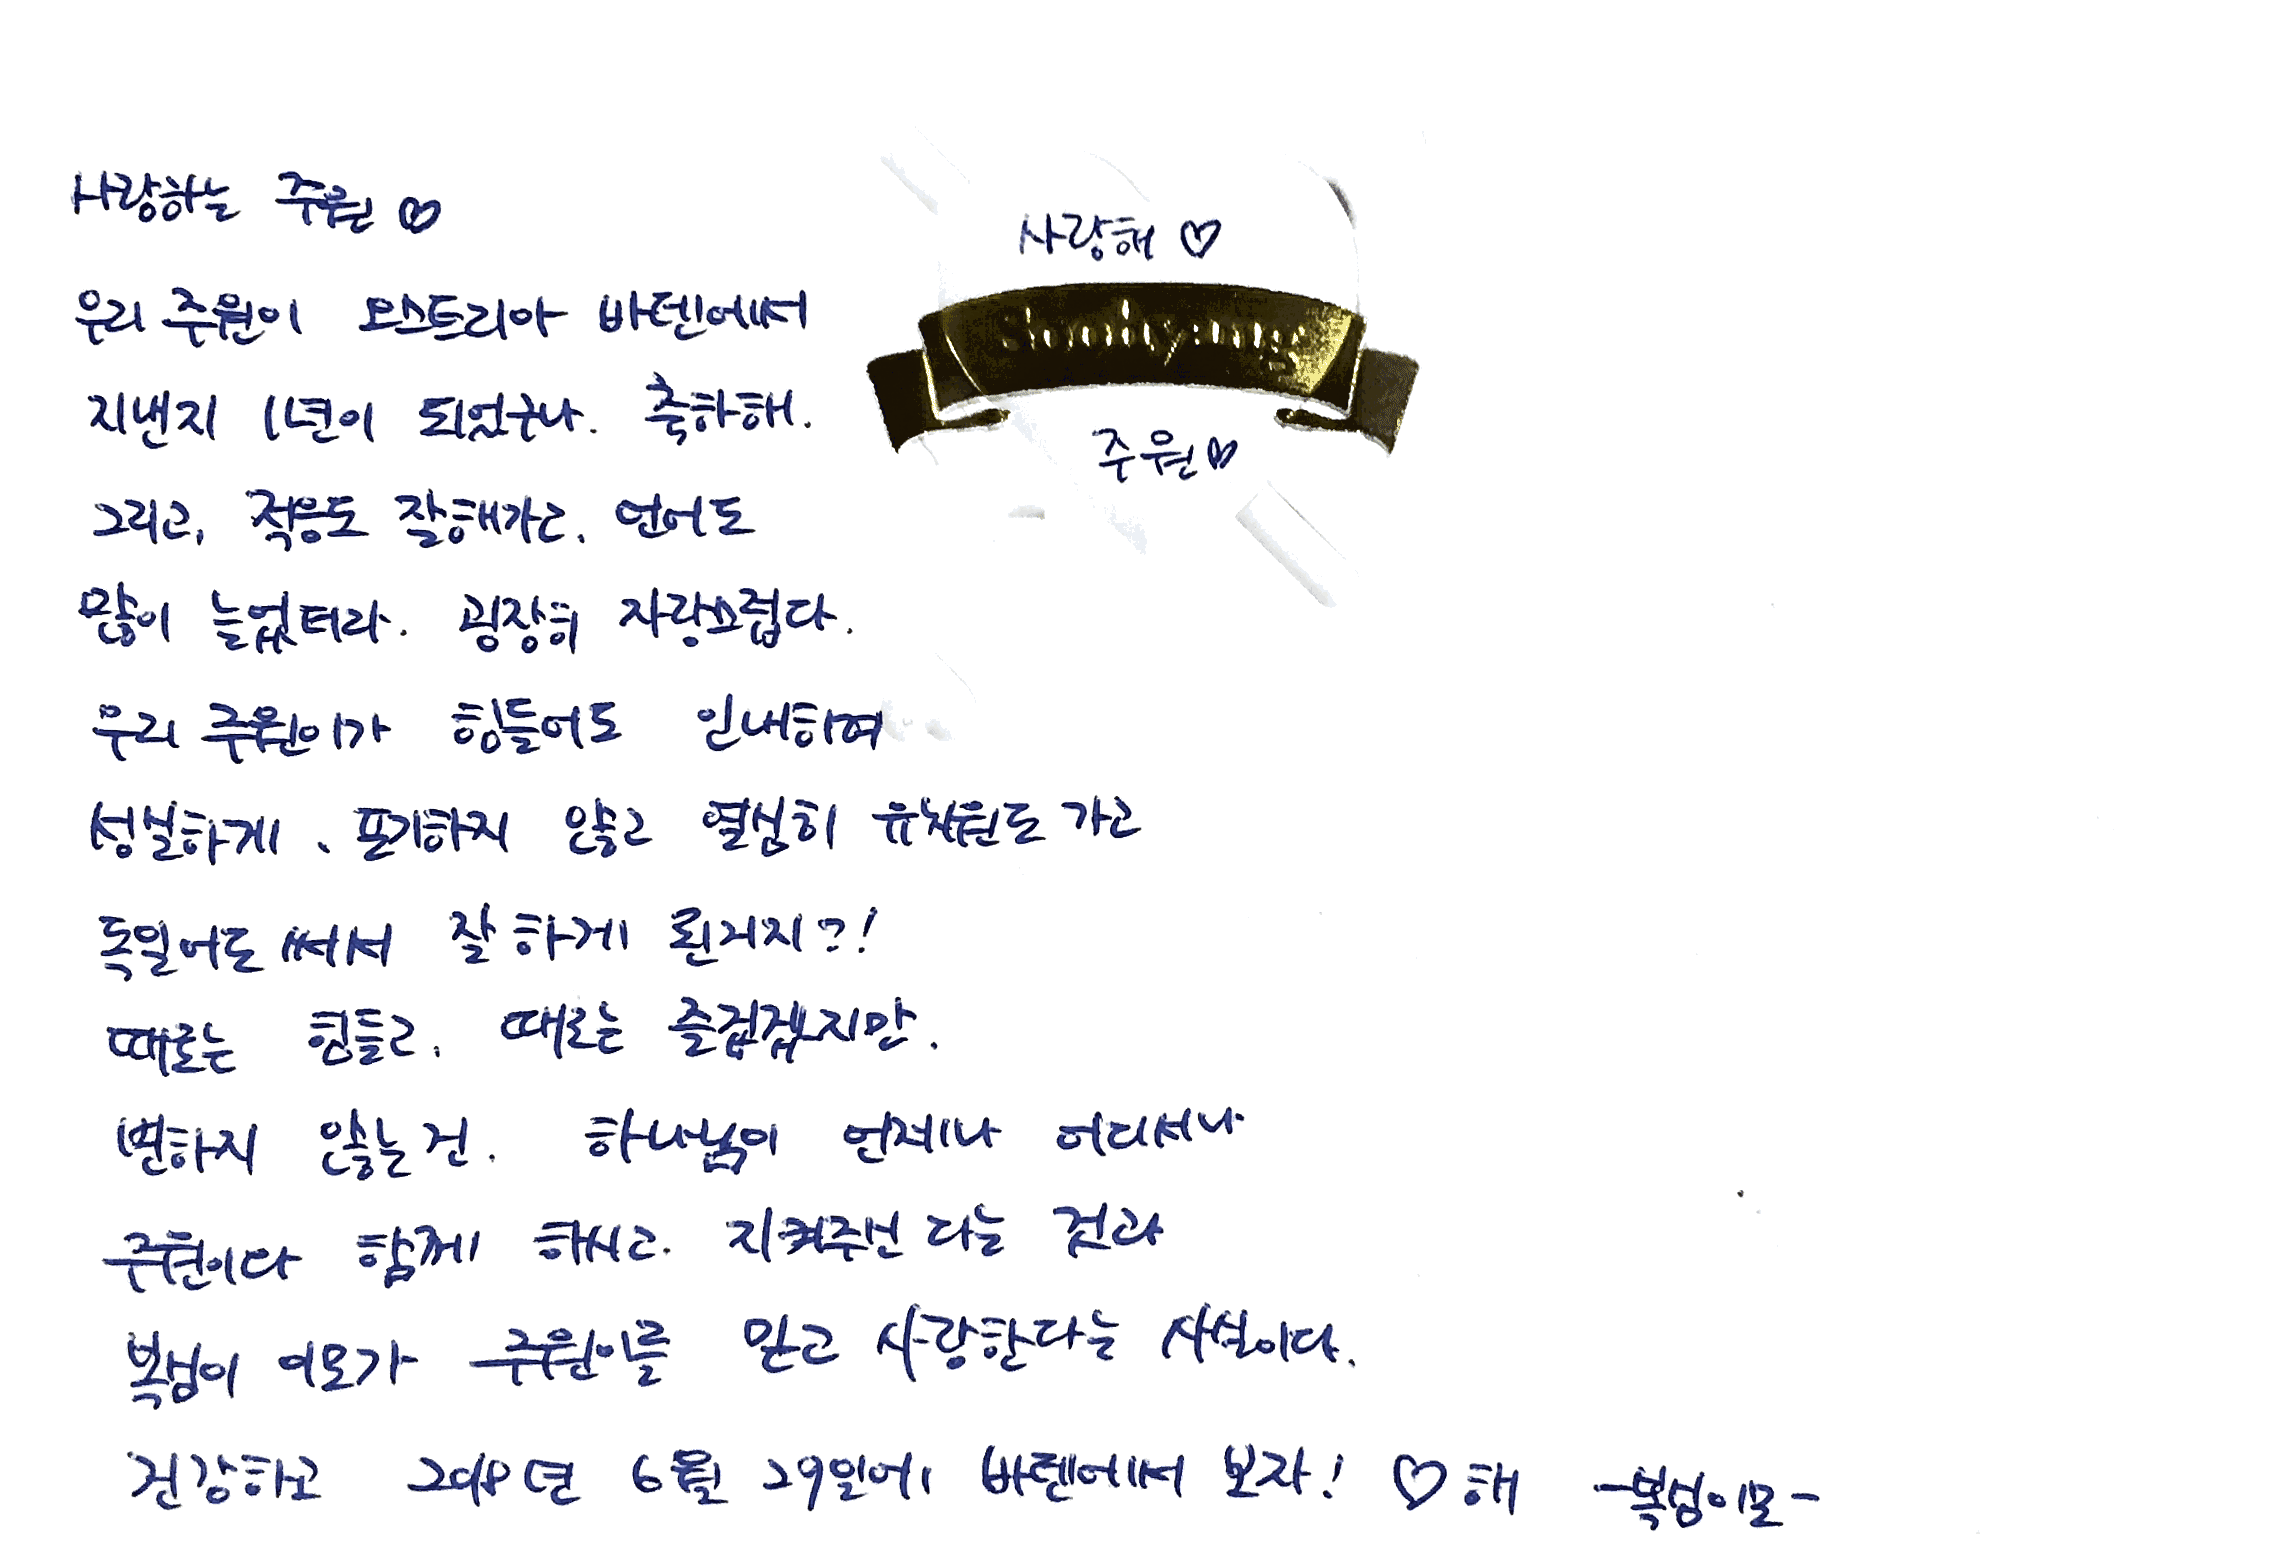 사랑하는 주원 ♡
사랑해 ♡
주원♡
우리 주원이 오스트리아 바덴에서
지낸지 1년이 되었구나. 축하해.
그리고, 적응도 잘해가고, 언어도
많이 늘었더라. 굉장히 자랑스럽다.
우리 주원이가 힘들어도 인내하며
성실하게, 포기하지 않고 열심히 유치원도 가고
독일어도 써서 잘하게 된거지?!
때로는 힘들고, 때로는 즐겁겠지만,
변하지 않는건, 하나님이 언제나 어디서나
주원이랑 함께 하시고, 지켜주신다는 것과
복섬이 이모가 주원이를 믿고 사랑한다는 사실이다.
건강하고 2018년 6월 29일에 바덴에서 보자! ♡해 -복섬이모-